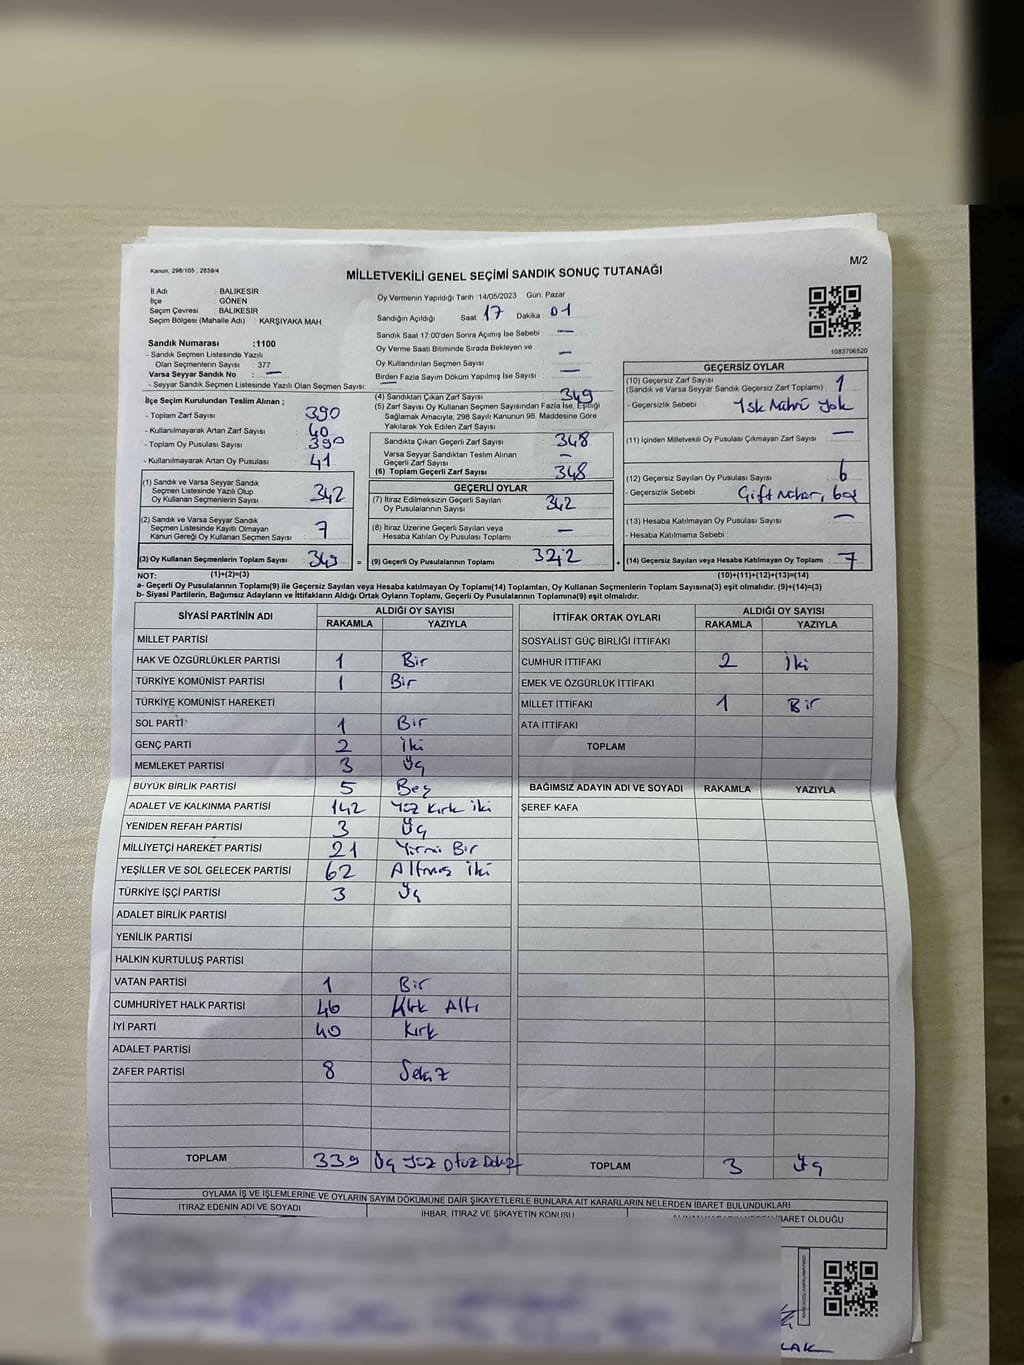 Kanun, 298/105 , 2839/4
MİLLETVEKİLİ GENEL SEÇİMİ SANDIK SONUÇ TUTANAĞI
M/2
İl Adı : BALIKESİR
İlçe : GÖNEN
Seçim Çevresi : BALIKESİR
Seçim Bölgesi (Mahalle Adı) : KARŞIYAKA MAH
Sandık Numarası :1100
- Sandık Seçmen Listesinde Yazılı
Olan Seçmenlerin Sayısı : 377
Varsa Seyyar Sandık No : —
- Seyyar Sandık Seçmen Listesinde Yazılı Olan Seçmen Sayısı:
Oy Vermenin Yapıldığı Tarih :14/05/2023 Gün: Pazar
Sandığın Açıldığı Saat 17 Dakika 01
Sandık Saat 17:00'den Sonra Açılmış İse Sebebi : —
Oy Verme Saati Bitiminde Sırada Bekleyen ve
Oy Kullandırılan Seçmen Sayısı : —
Birden Fazla Sayım Döküm Yapılmış İse Sayısı : —
1083706520
İlçe Seçim Kurulundan Teslim Alınan ;
- Toplam Zarf Sayısı : 390
- Kullanılmayarak Artan Zarf Sayısı : 40
- Toplam Oy Pusulası Sayısı : 390
- Kullanılmayarak Artan Oy Pusulası : 41
(1) Sandık ve Varsa Seyyar Sandık
Seçmen Listesinde Yazılı Olup
Oy Kullanan Seçmenlerin Sayısı : 342
(2) Sandık ve Varsa Seyyar Sandık
Seçmen Listesinde Kayıtlı Olmayan
Kanun Gereği Oy Kullanan Seçmen Sayısı : 7
(3) Oy Kullanan Seçmenlerin Toplam Sayısı : 349
(4) Sandıktan Çıkan Zarf Sayısı : 349
(5) Zarf Sayısı Oy Kullanan Seçmen Sayısından Fazla İse, Eşitliği
Sağlamak Amacıyla; 298 Sayılı Kanunun 98. Maddesine Göre
Yakılarak Yok Edilen Zarf Sayısı :
Sandıkta Çıkan Geçerli Zarf Sayısı : 348
Varsa Seyyar Sandıktan Teslim Alınan
Geçerli Zarf Sayısı : —
(6) Toplam Geçerli Zarf Sayısı : 348
GEÇERLİ OYLAR
(7) İtiraz Edilmeksizin Geçerli Sayılan
Oy Pusulalarının Sayısı : 342
(8) İtiraz Üzerine Geçerli Sayılan veya
Hesaba Katılan Oy Pusulası Toplamı : —
= (9) Geçerli Oy Pusulalarının Toplamı : 342
GEÇERSİZ OYLAR
(10) Geçersiz Zarf Sayısı
(Sandık ve Varsa Seyyar Sandık Geçersiz Zarf Toplamı) : 1
- Geçersizlik Sebebi :
(11) İçinden Milletvekili Oy Pusulası Çıkmayan Zarf Sayısı : —
(12) Geçersiz Sayılan Oy Pusulası Sayısı : 6
- Geçersizlik Sebebi :
(13) Hesaba Katılmayan Oy Pusulası Sayısı : —
- Hesaba Katılmama Sebebi :
+ (14) Geçersiz Sayılan veya Hesaba Katılmayan Oy Toplamı : 7
NOT: (1)+(2)=(3) (10)+(11)+(12)+(13)=(14)
a- Geçerli Oy Pusulalarının Toplamı(9) ile Geçersiz Sayılan veya Hesaba katılmayan Oy Toplamı(14) Toplamları, Oy Kullanan Seçmenlerin Toplam Sayısına(3) eşit olmalıdır. (9)+(14)=(3)
b- Siyasi Partilerin, Bağımsız Adayların ve İttifakların Aldığı Ortak Oyların Toplamı, Geçerli Oy Pusulalarının Toplamına(9) eşit olmalıdır.
SİYASİ PARTİNİN ADI ALDIĞI OY SAYISI
RAKAMLA YAZIYLA
MİLLET PARTİSİ
HAK VE ÖZGÜRLÜKLER PARTİSİ 1 Bir
TÜRKİYE KOMÜNİST PARTİSİ 1 Bir
TÜRKİYE KOMÜNİST HAREKETİ
SOL PARTİ 1 Bir
GENÇ PARTİ 2 İki
MEMLEKET PARTİSİ 3 Üç
BÜYÜK BİRLİK PARTİSİ 5 Beş
ADALET VE KALKINMA PARTİSİ 142 Yüz Kırk iki
YENİDEN REFAH PARTİSİ 3 Üç
MİLLİYETÇİ HAREKET PARTİSİ 21 Yirmi Bir
YEŞİLLER VE SOL GELECEK PARTİSİ 62 Altmış iki
TÜRKİYE İŞÇİ PARTİSİ 3 Üç
ADALET BİRLİK PARTİSİ
YENİLİK PARTİSİ
HALKIN KURTULUŞ PARTİSİ
VATAN PARTİSİ 1 Bir
CUMHURİYET HALK PARTİSİ 46 Kırk Altı
İYİ PARTİ 40 Kırk
ADALET PARTİSİ
ZAFER PARTİSİ 8 Sekiz
TOPLAM 339 Üç Yüz Otuz Dokuz
İTTİFAK ORTAK OYLARI ALDIĞI OY SAYISI
RAKAMLA YAZIYLA
SOSYALİST GÜÇ BİRLİĞİ İTTİFAKI
CUMHUR İTTİFAKI 2 İki
EMEK VE ÖZGÜRLÜK İTTİFAKI
MİLLET İTTİFAKI 1 Bir
ATA İTTİFAKI
TOPLAM
BAĞIMSIZ ADAYIN ADI VE SOYADI RAKAMLA YAZIYLA
ŞEREF KAFA
TOPLAM 3 Üç
OYLAMA İŞ VE İŞLEMLERİNE VE OYLARIN SAYIM DÖKÜMÜNE DAİR ŞİKAYETLERLE BUNLARA AİT KARARLARIN NELERDEN İBARET BULUNDUKLARI
İTİRAZ EDENİN ADI VE SOYADI
İHBAR, İTİRAZ VE ŞİKAYETİN KONUSU
İBARET OLDUĞU